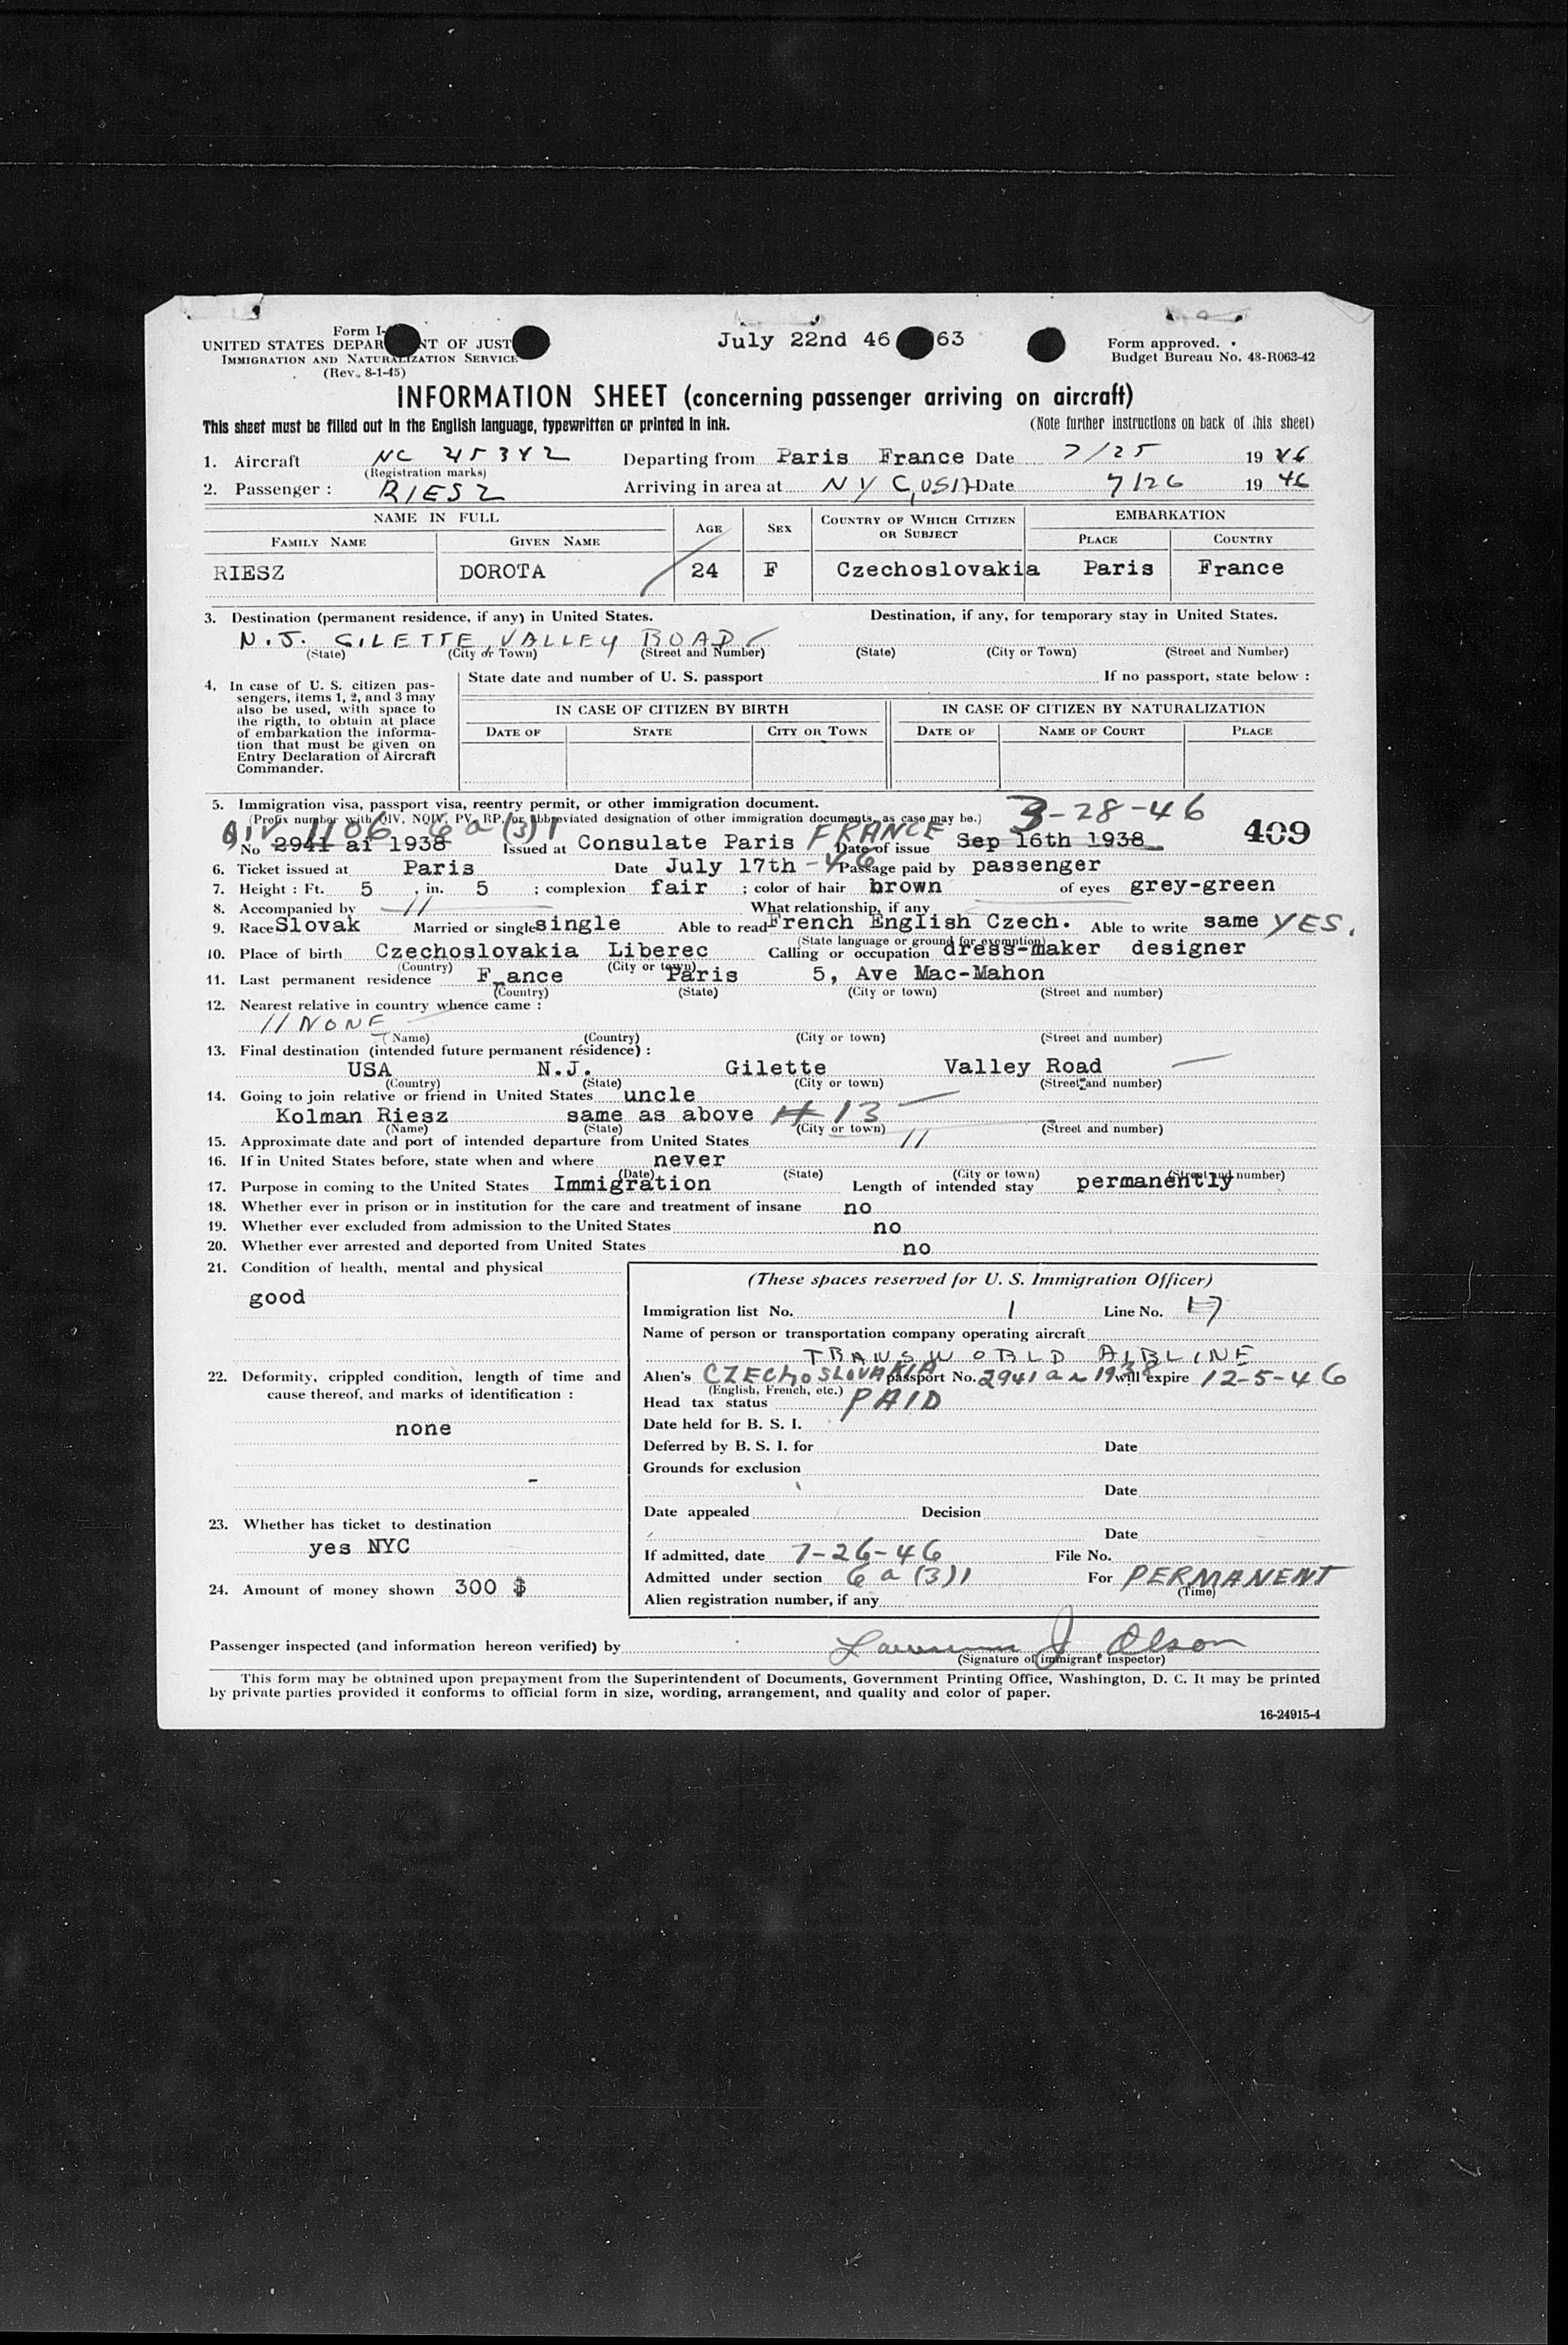 Form I-
UNITED STATES DEPAR NT OF JUST
IMMIGRATION AND NATURALIZATION SERVICE
(Rev. 8-1-45)
July 22nd 46 63
Form approved.
Budget Bureau No. 48-R063-42
INFORMATION SHEET (concerning passenger arriving on aircraft)
This sheet must be filled out in the English language, typewritten or printed in ink. (Note further instructions on back of this sheet)
1. Aircraft NC 45342 Departing from Paris France Date 7/25 19 46
(Registration marks)
2. Passenger : RIESZ Arriving in area at NYC, USA Date 7/26 19 46
NAME IN FULL AGE SEX COUNTRY OF WHICH CITIZEN OR SUBJECT EMBARKATION
FAMILY NAME GIVEN NAME PLACE COUNTRY
RIESZ DOROTA 24 F Czechoslovakia Paris France
3. Destination (permanent residence, if any) in United States. Destination, if any, for temporary stay in United States.
N.J. GILETTE, VALLEY ROAD
(State) (City or Town) (Street and Number) (State) (City or Town) (Street and Number)
4. In case of U. S. citizen pas-
sengers, items 1, 2, and 3 may
also be used, with space to
the rigth, to obtain at place
of embarkation the informa-
tion that must be given on
Entry Declaration of Aircraft
Commander.
State date and number of U. S. passport If no passport, state below :
IN CASE OF CITIZEN BY BIRTH IN CASE OF CITIZEN BY NATURALIZATION
DATE OF STATE CITY OR TOWN DATE OF NAME OF COURT PLACE
5. Immigration visa, passport visa, reentry permit, or other immigration document.
(Prefix number with QIV, NQIV, PV, RP, or abbreviated designation of other immigration documents, as case may be.)
QIV 1106 6a(3)1 FRANCE 3-28-46
No 2941 ai 1938 Issued at Consulate Paris Date of issue Sep 16th 1938 409
6. Ticket issued at Paris Date July 17th -46 Passage paid by passenger
7. Height : Ft. 5 , in. 5 ; complexion fair ; color of hair brown of eyes grey-green
8. Accompanied by // What relationship, if any
9. Race Slovak Married or single single Able to read French English Czech. Able to write same YES.
(State language or ground for exemption)
10. Place of birth Czechoslovakia Liberec Calling or occupation dress-maker designer
(Country) (City or town)
11. Last permanent residence France Paris 5, Ave Mac-Mahon
(Country) (State) (City or town) (Street and number)
12. Nearest relative in country whence came :
// NONE
(Name) (Country) (City or town) (Street and number)
13. Final destination (intended future permanent résidence) :
USA N.J. Gilette Valley Road
(Country) (State) (City or town) (Street and number)
14. Going to join relative or friend in United States uncle
Kolman Riesz same as above # 13
(Name) (State) (City or town) (Street and number)
15. Approximate date and port of intended departure from United States //
16. If in United States before, state when and where never
(Date) (State) (City or town) (Street and number)
17. Purpose in coming to the United States Immigration Length of intended stay permanently
18. Whether ever in prison or in institution for the care and treatment of insane no
19. Whether ever excluded from admission to the United States no
20. Whether ever arrested and deported from United States no
21. Condition of health, mental and physical
good
22. Deformity, crippled condition, length of time and
cause thereof, and marks of identification :
none
23. Whether has ticket to destination
yes NYC
24. Amount of money shown 300 $
(These spaces reserved for U. S. Immigration Officer)
Immigration list No. 1 Line No. 17
Name of person or transportation company operating aircraft
TRANSWORLD AIRLINE
Alien's CZECHOSLOVAKIA passport No. 2941 a 1938 will expire 12-5-46
(English, French, etc.)
Head tax status PAID
Date held for B. S. I.
Deferred by B. S. I. for Date
Grounds for exclusion
Date
Date appealed Decision
Date
If admitted, date 7-26-46 File No.
Admitted under section 6a(3)1 For PERMANENT
(Time)
Alien registration number, if any
Passenger inspected (and information hereon verified) by J. Olson
(Signature of immigrant inspector)
This form may be obtained upon prepayment from the Superintendent of Documents, Government Printing Office, Washington, D. C. It may be printed
by private parties provided it conforms to official form in size, wording, arrangement, and quality and color of paper.
16-24915-4